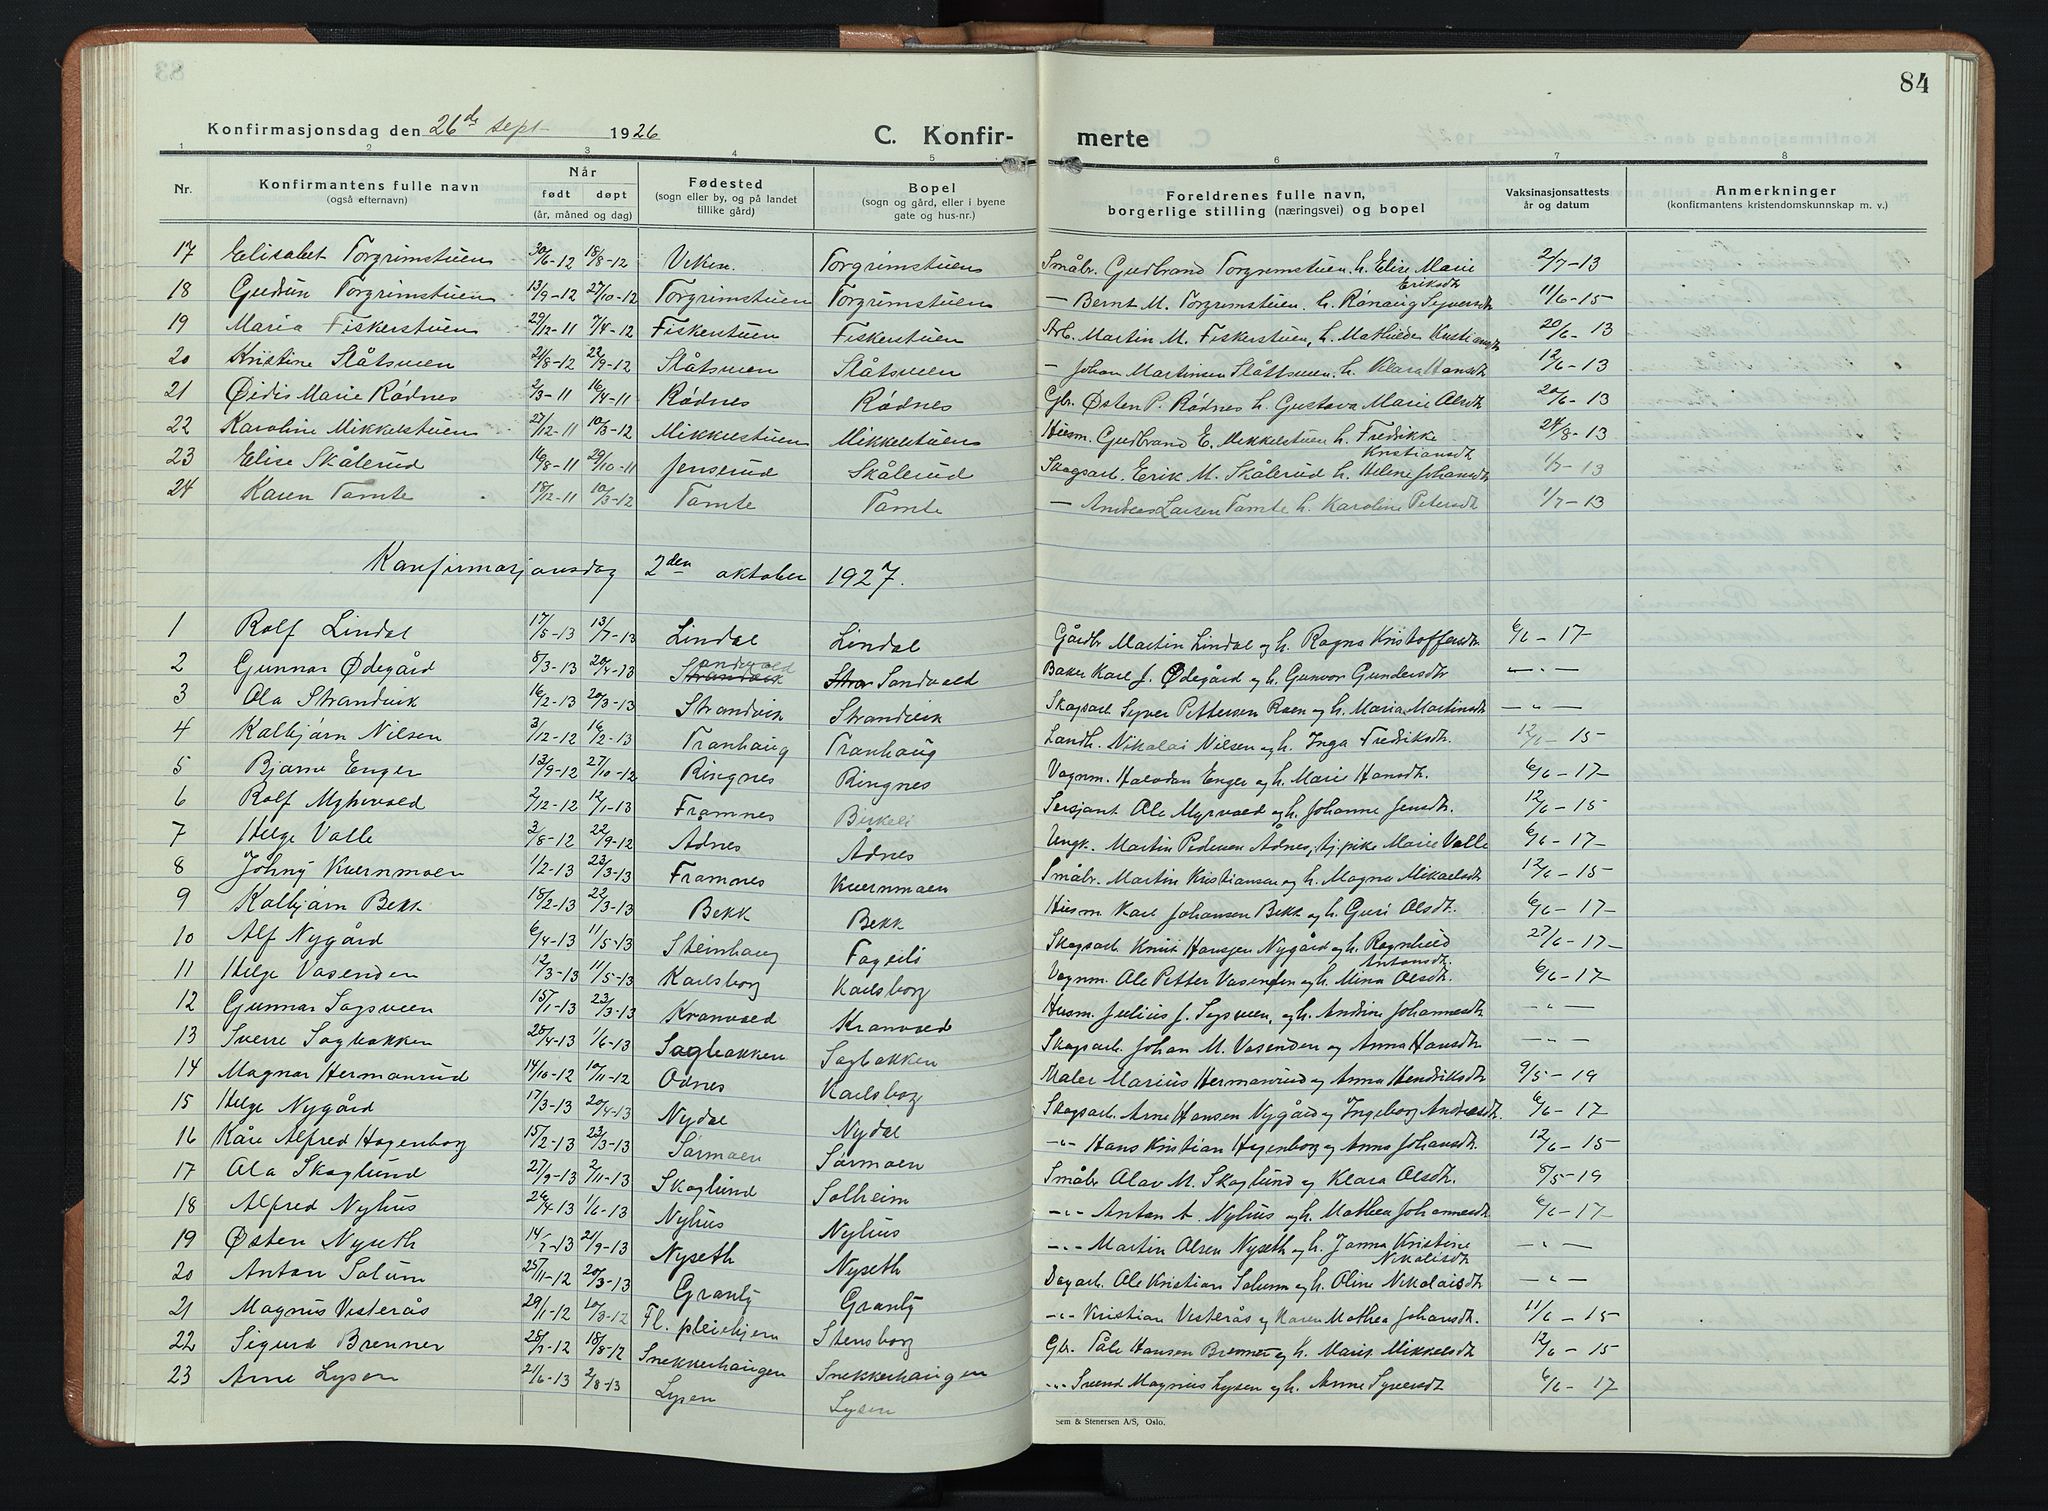 84
Konfirmasjonsdag den 26de sept 1926 C. Konfir- merte
1 2 3 4 5 6 7 8
Nr. Konfirmantens fulle navn (også efternavn) Når født døpt (år, måned og dag) Fødested (sogn eller by, og på landet tillike gård) Bopel (sogn og gård, eller i byene gate og hus-nr.) Foreldrenes fulle navn, borgerlige stilling (næringsvei) og bopel Vaksinasjonsattests år og datum Anmerkninger (konfirmantens kristendomskunnskap m. v.)
17 Elisabet Torgrimstuen 30/6-12 18/8-12 Viken. Torgrimstuen Småbr. Gudbrand Torgrimstuen h. Elise Marie Eriksdt 2/7-13
18 Gudrun Torgrimstuen 13/9-12 27/10-12 Torgrimstuen Torgrimstuen — Bernt M. Torgrimstuen. h. Rønaug Syversdt 11/6-15
19 Maria Fiskerstuen 29/12-11 7/4-12 Fiskerstuen Fiskerstuen Arb. Martin M. Fiskerstuen, h. Mathilde Kristiansdt 20/6-13
20 Kristine Slåtsveen 21/8-12 22/9-12 Slåtsveen Slåtsveen — Johan Martinsen Slåttsveen. h. Klara Hansdt 12/6-13
21 Øidis Marie Rødnes 2/3-11 16/4-11 Rødnes Rødnes Gbr. Østen P. Rødnes h. Gustava Marie Olsdt 20/6-13
22 Karoline Mikkelstuen 27/12-11 10/3-12 Mikkelstuen Mikkelstuen Husm. Gudbrand E. Mikkelstuen h. Fredrikke Kristiansdt 24/8-13
23 Elise Skålerud 16/8-11 29/10-11 Jenserud Skålerud Skogsarb. Erik M. Skålerud h. Helene Johansdt 1/7-13
24 Karen Tomte 18/12-11 10/3-12 Tomte Tomte — Andreas Larsen Tomte h. Karoline Petersdt 1/7-13
Konfirmasjonsdag 2den oktober 1927.
1 Rolf Lindal 17/5-13 13/7-13 Lindal Lindal Gårdbr Martin Lindal og h. Ragna Kristoffersdt. 6/6-17-
2 Gunnar Ødegård 8/3-13 20/4-13 Strandvik Sandvold Stra Sandvold Baker Karl J. Ødegård og h. Gunvor Gundersdtr —„—
3 Ola Strandvik 16/2-13 20/3-13 Strandvik Strandvik Skogsarb. Syver Pettersen Roen og h. Maria Martinsdt —„—
4 Kolbjørn Nilsen 3/12-12 16/2-13 Tranhaug Tranhaug Landh. Nikolai Nilsen og h. Inga Fredriksdt. 12/6-15
5 Bjarne Enger 13/9-12 27/10-12 Ringnes Ringnes Vognm. Halvdan Enger og h. Marie Hansdt. 6/6-17-
6 Rolf Myhrvold 2/12-12 12/1-13 Framnes Birkeli Sersjant Ole Myrvold og h. Johanne Jensdt. 12/6-15
7 Helge Valle 3/8-12 22/9-12 Adnes Ådnes Ungk. Martin Pedersen Ådnes, tj.pike Marie Valle 6/6-17-
8 Johny Kvernmoen 1/2-13 23/3-13 Framnes Kvernmoen Småbr. Martin Kristiansen og h. Magna Mikaelsdt 12/6-15
9 Kolbjørn Bekk 18/2-13 22/3-13 Bekk Bekk Husm Karl Johansen Bekk og h. Guri Olsdt. 6/6-17-
10 Alf Nygård 6/4-13 11/5-13 Steinhaug Fagerli Skogsarb. Knut Hansen Nygård og h. Ragnhild Antonsdt. 27/6-17-
11 Helge Vasenden 12/3-13 11/5-13 Karlsborg Karlsborg Vognm. Ole Petter Vasenden og h. Mina Olsdt. 6/6-17
12 Gunnar Sagsveen 15/1-13 23/3-13 Kranvold Kranvold Husm. Julius J. Sagsveen, og h. Andrine Johannesdt —„—
13 Sverre Sagbakken 20/4-13 1/6-13 Sagbakken Sagbakken Skogsarb. Johan M. Vasenden og Anna Hansdt —„—
14 Magnar Hermanrud 14/10-12 10/11-12 Odnes Karlsborg Maler Marius Hermanrud og Anna Hendriksdt 9/5-19
15 Helge Nygård 17/3-13 20/4-13 Nydal Nydal Skogsarb. Arne Hansen Nygård og Ingeborg Andreasdt. 6/6-17
16 Kåre Alfred Hagenborg 15/2-13 23/3-13 Sørmoen Sørmoen -„- Hans Kristian Hagenborg og Anna Johansdt. 12/6-15
17 Ola Skoglund 27/9-13 2/11-13 Skoglund Solheim Småbr Olav M. Skoglund og Klara Olsdt. 8/5-19
18 Alfred Nyhus 26/4-13 1/6-13 Nyhus Nyhus -„- Anton A. Nyhus og h. Mathea Johannesdt. 6/6-17-
19 Østen Nyseth 14/7-13 21/9-13 Nyseth Nyseth -„- Martin Olsen Nyseth og h. Janna Kristine Nikolisdt —„—
20 Anton Solum 25/11-12 20/3-13 Granly Granly Dagarb. Ole Kristian Solum og h. Oline Nikolaisdt —„—
21 Magnus Vesterås 29/1-12 10/3-12 Fl. pleiehjem Stensborg -„- Kristian Vesterås og Karen Mathea Johansdt. 11/6-15
22 Sigurd Brenner 28/7-12 18/8-12 Snekkerhaugen Snekkerhaugen Gbr. Påle Hansen Brenner og h. Marit Mikkelsdt 12/6-15
23 Arne Lysen 21/6-13 2/8-13 Lysen Lysen -„- Svend Magnus Lysen og h. Anne Syversdt 6/6-17
Sem & Stenersen A/S, Oslo.